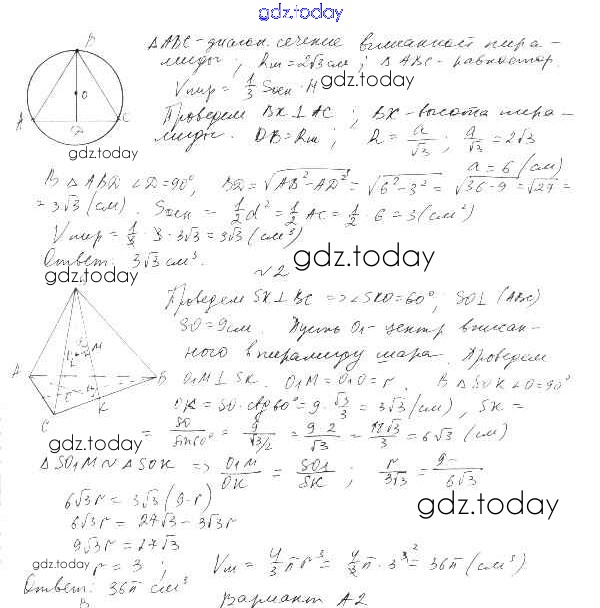 gdz.today
△ABC - диагон. сечение вписанной пира-
миды; Rш = 2√3 см; △ABC - равностор.
Vпир = 1/3 Sосн · H
gdz.today
Проведем BK ⊥ AC; BK - высота пира-
миды. OB = Rш; R = a/√3; a/√3 = 2√3
gdz.today
a = 6 (см)
В △ABD ∠D = 90°, BD = √(AB² - AD²) = √(6² - 3²) = √(36 - 9) = √27 =
= 3√3 (см). Sосн = 1/2 d² = 1/2 AC = 1/2 · 6 = 3 (см²)
Vпир = 1/3 · 3 · 3√3 = 3√3 (см³)
Ответ: 3√3 см³.
gdz.today
№2
gdz.today
Проведем SK ⊥ BC => ∠SKO = 60°; SO ⊥ (ABC)
SO = 9 см. Пусть O₁ - центр вписан-
ного в пирамиду шара. Проведем
O₁M ⊥ SK. O₁M = O₁O = r. В △SOK ∠O = 90°
OK = SO · ctg 60° = 9 · √3/3 = 3√3 (см), SK =
= SO/sin 60° = 9/(√3/2) = 9·2/√3 = 18√3/3 = 6√3 (см)
gdz.today
△SO₁M ∾ △SOK => O₁M/OK = SO₁/SK; r/3√3 = 9-/6√3
6√3r = 3√3(9-r)
gdz.today
6√3r = 27√3 - 3√3r
9√3r = 27√3
gdz.today
r = 3; Vш = 4/3 πr³ = 4/3 π · 3³ = 36π (см³)
Ответ: 36π см³
Вариант А2